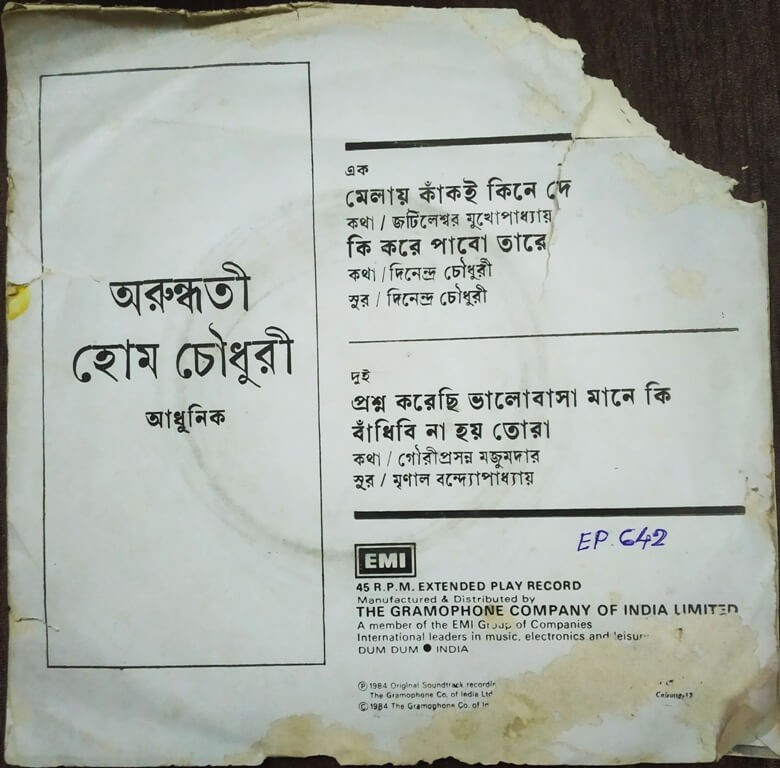 অরুন্ধতী
হোম চৌধুরী
আধুনিক
এক
মেলায় কাঁকই কিনে দে
কথা / জটিলেশ্বর মুখোপাধ্যায়
কি করে পাবো তারে
কথা / দিনেন্দ্র চৌধুরী
সুর / দিনেন্দ্র চৌধুরী
দুই
প্রশ্ন করেছি ভালোবাসা মানে কি
বাঁধিবি না হয় তোরা
কথা / গৌরীপ্রসন্ন মজুমদার
সুর / মৃণাল বন্দ্যোপাধ্যায়
EP. 642
EMI
45 R.P.M. EXTENDED PLAY RECORD
Manufactured & Distributed by
THE GRAMOPHONE COMPANY OF INDIA LIMITED
A member of the EMI Group of Companies
International leaders in music, electronics and leisur
DUM DUM ● INDIA
Ⓟ 1984 Original Soundtrack recordin
The Gramophone Co. of India Ltd
© 1984 The Gramophone Co. of In